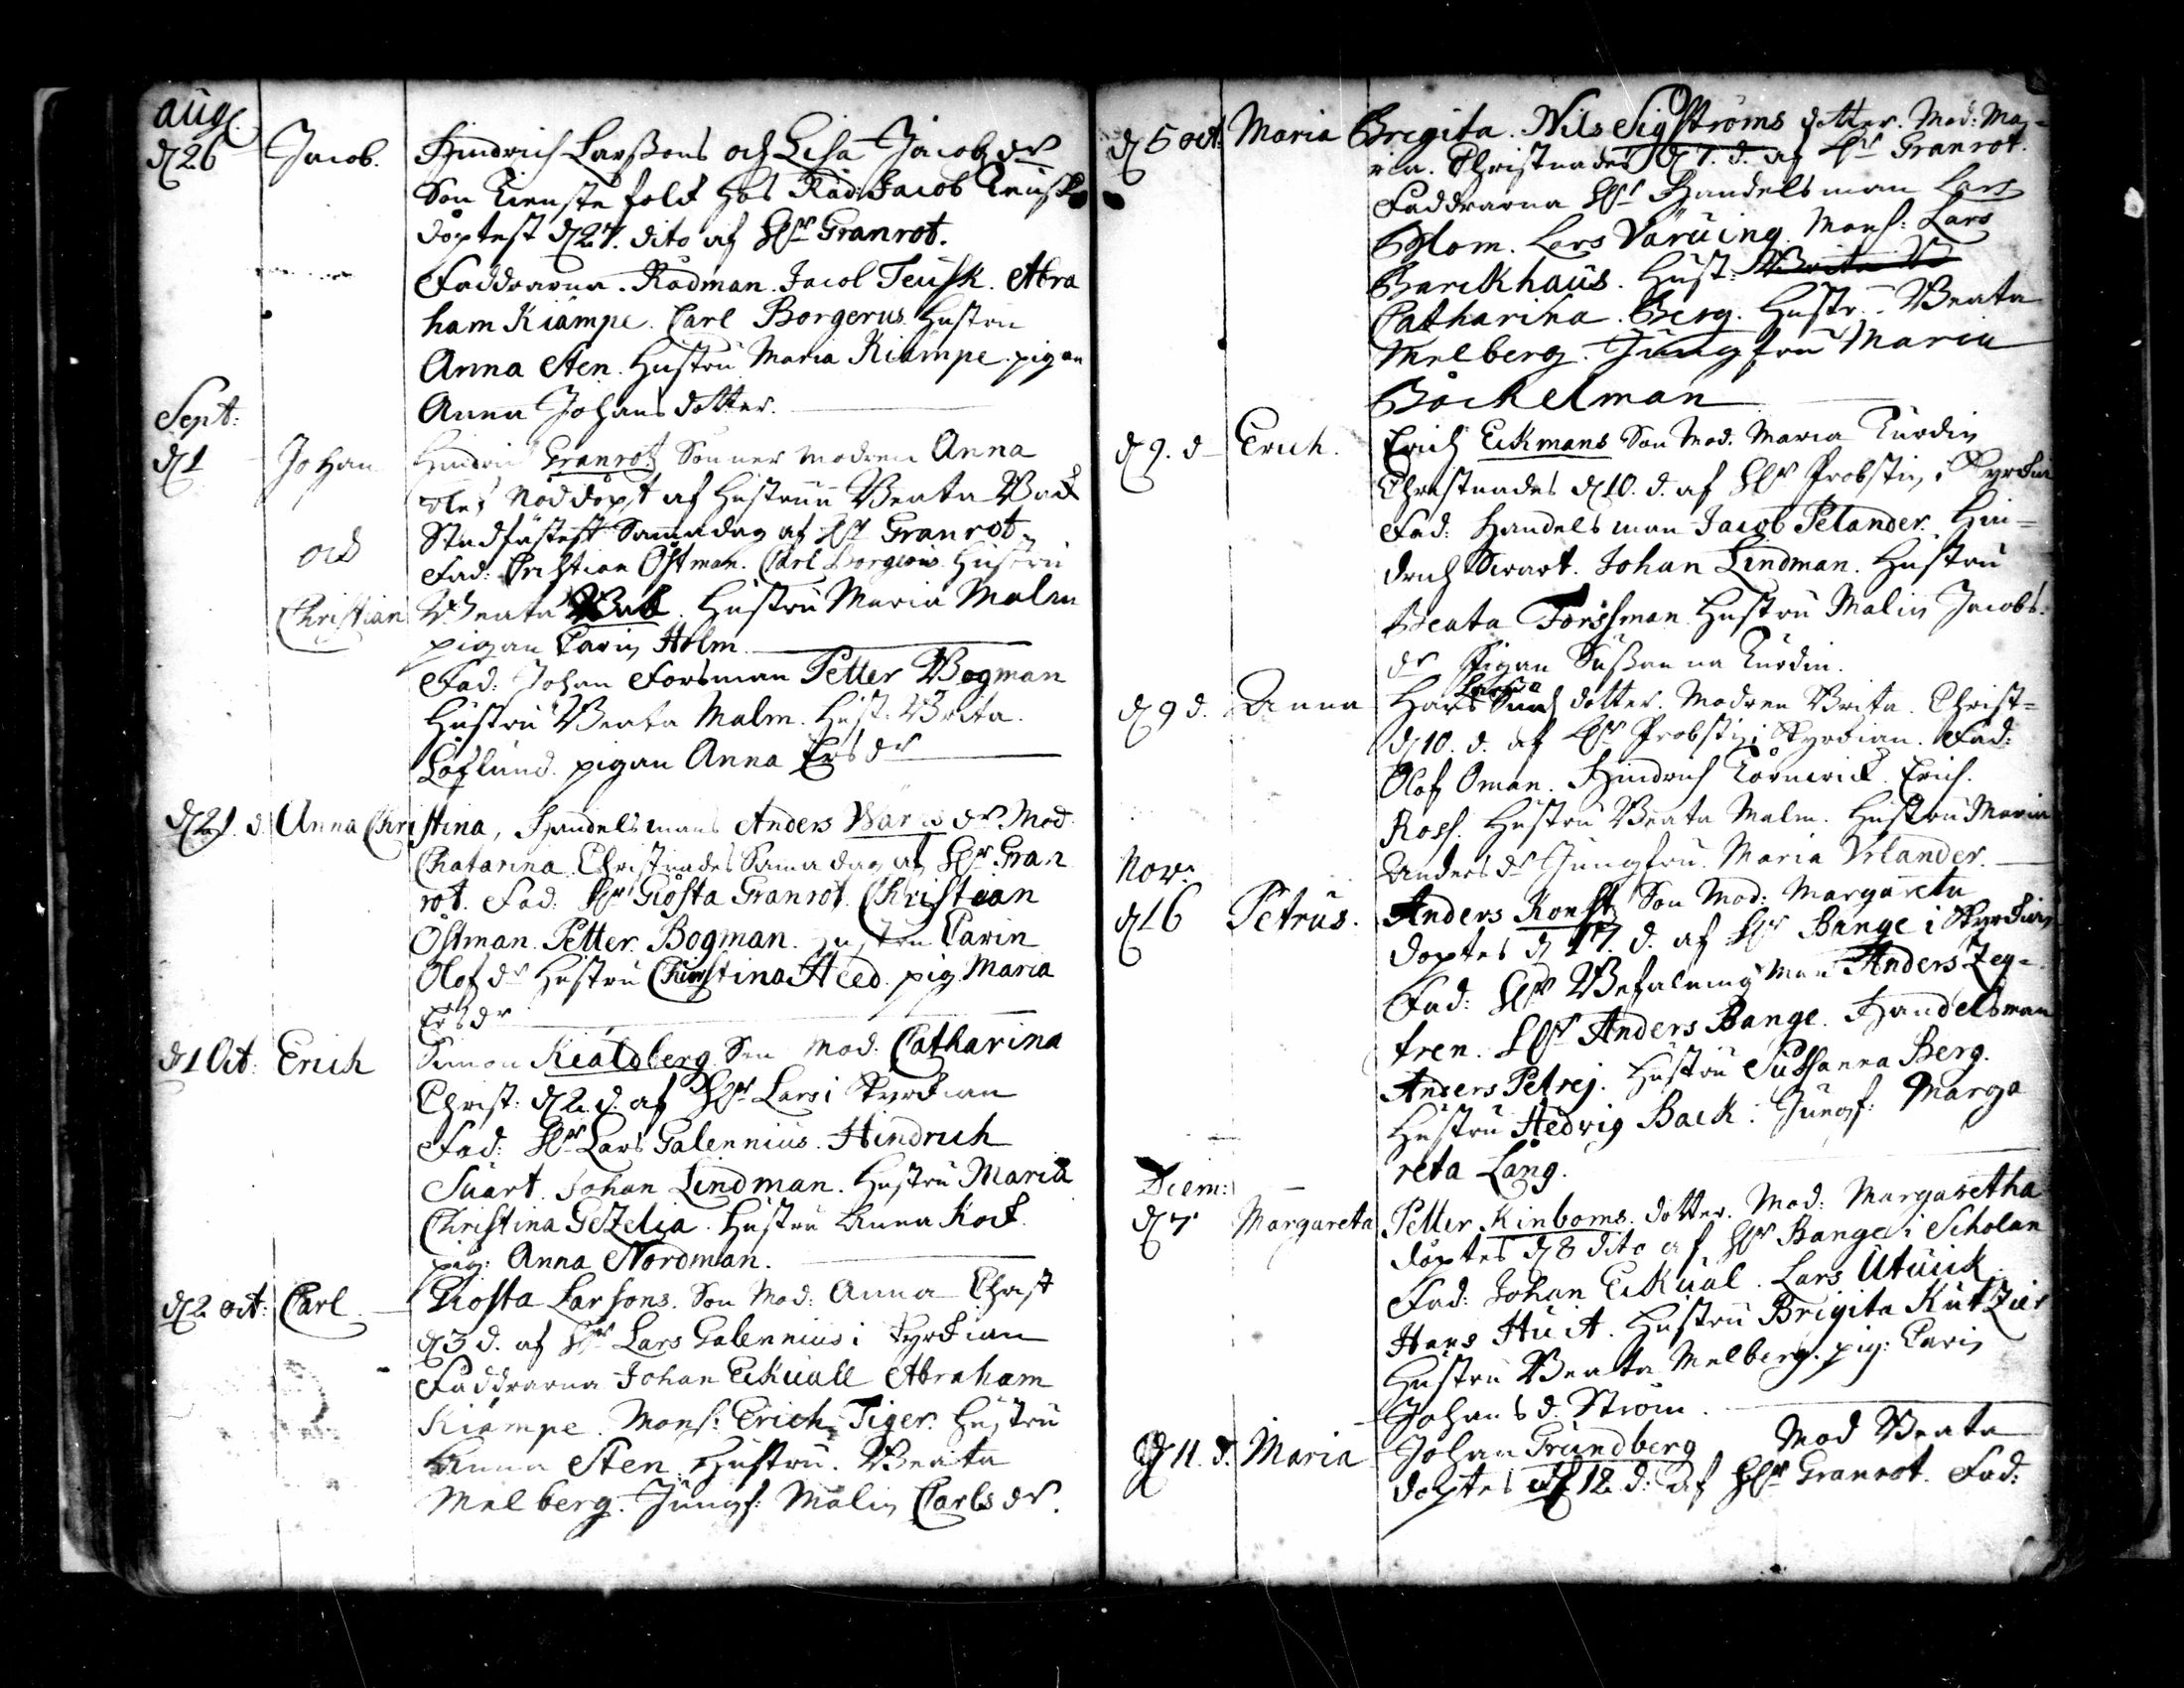 aug.
d 26 Jacob. Hindrich Larssons och Lisa Jacobs dr
Son tienste folk hos Råd: Jacob Teusk
döptest d 27. dito af Hr Granrot.
Faddrarna. Rådman. Jacob Teusk. Abra
ham Kiämpe. Carl Borgerus. Hustru
Anna Sten. Hustru Maria Kiämpe. pigan
Anna Johans dotter.
Sept:
d 1 Johan Hindric Granrotz Sönner modren Anna
nöddöpt af Hustrun Beata
och Stadfästest Samma dag af Hr Granrot
Fad: Christian Östman. Carl Borgerus Hustru
Christian Beata Hustru Maria Malm
pigan Carin Holm
Fad: Johan Forsman Petter Bogman
Hustru Beata Malm. Hust. Brita
Löflund. pigan Anna Ers dr
d 21. d. Anna Christina, Handelsmans Anders dr Mod
Chatarina Christnades Samma dag af Hr Gran
rot. Fad: Hr Giösta Granrot. Christian
Östman. Petter. Bogman. Hustru Carin
Olofs dr Hustru Christina Heed. pig. Maria
Ers dr
d 1 Oct: Erich Simon Kialdberg Son Mod. Catharina
Christ: d 2. d. af Hr Lars i Kyrkian
Fad: Hr Lars Galennius. Hindrich
Suart. Johan Lindman. Hustru Maria
Christina Gezelia. Hustru Anna Kock
pig: Anna Nordman.
d 2 oct: Carl Giösta Larsons. Son Mod: Anna Christ
d 3 d. af Hr Lars Galennius i Kyrkian
Faddrarna Johan Eckuall Abraham
Kiämpe. Mons: Erich Tiger. Hustru
Anna Sten Hustru. Beata
Melberg. Jungf: Malin Carls dr.
d 5 oct: Maria Brigita. Nils Sigströms dotter. Mod: Ma=
ria. Christnades d 7. d. af Hr Granrot.
Faddrarna Hr Handelsman Lars
Blom. Lars Väruing. Mons: Lars
Barckhaus. Hust:
Catharina. Berg. Hustr. Beata
Melberg. Jungfru Maria
Böckelman
d 9. d Erich. Erich Eckmans Son Mod. Maria Kurdin
Christnades d 10. d. af Hr Probsten i Kyrkian
Fad: Handelsman Jacob Pelander. Hin=
drich Swart. Johan Lindman. Hustru
Beata Forssman Hustru Malin Jacobs
dr Pigan Sussanna Kurdin.
d 9 d. Anna Hans dotter. Modren Brita. Christ=
d 10. d. af Hr Probsten i Kyrkian. Fad:
Olof Öman. Hindrich Erich.
Ross. Hustru Beata Malm. Hustru Maria
Anders dr Jungfru Maria Urlander.
Nov:
d 16 Petrus. Anders Konst Son Mod: Margareta
döptes d 17. d. af Hr Bange i Kyrkian
Fad: Hr Befalningsman Anders Zey=
tren. Hr Anders Bange. Handelsman
Anders Petrej. Hustru Sussanna Berg.
Hustru Hedvig Back. Jungf: Marga
reta Lång.
Diem:
d 7 Margareta Petter Kinboms. dotter. Mod: Margaretha
döptes d 8 dito af Hr Bange i Scholan
Fad: Johan Eckual. Lars Utuick.
Hans Huit. Hustru Brigita Kutzier
Hustru Beata Melberg. pig: Carin
Johans d. Ström.
d 11. d. Maria Johan Grundberg Mod Beata
döptes d 12 d: af Hr Granrot. Fad: